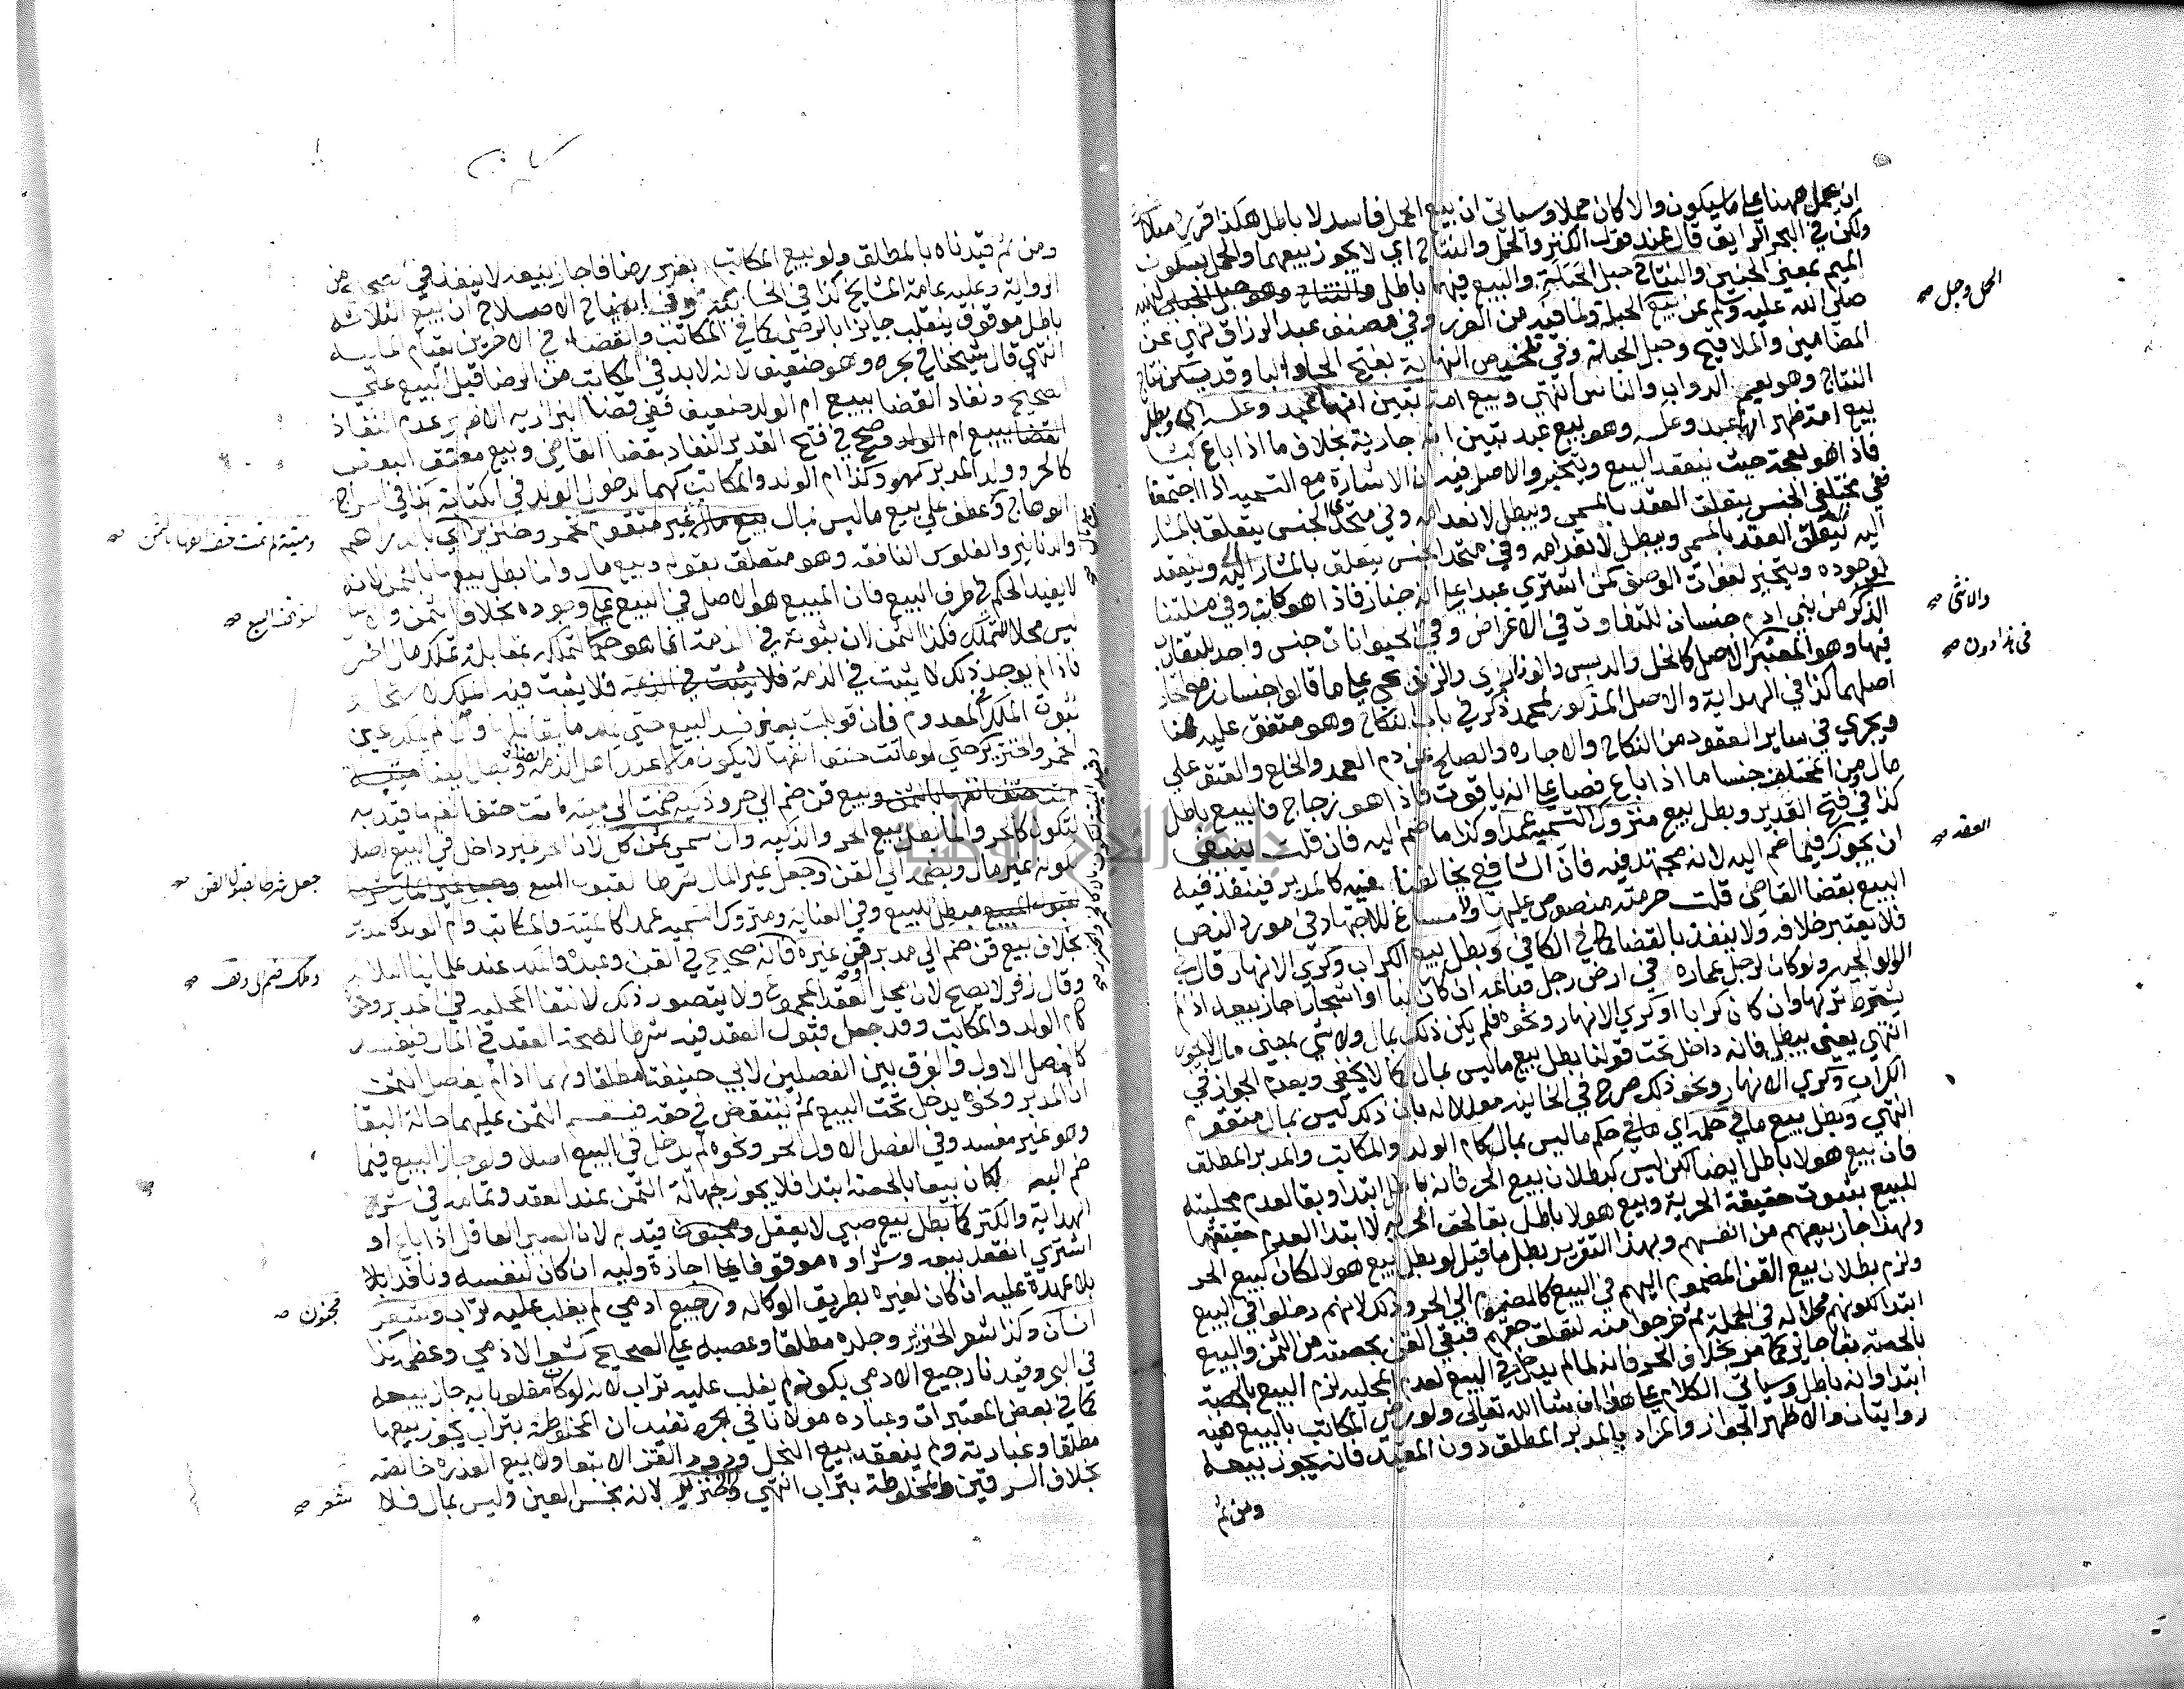 ان يحمل ههنا علي ما سيكون والا كان حملا وسياتي ان بيع الحمل فاسد لا باطل هكذا قرره
ولكن في البحر الرايق قال عند قول الكنز والحمل والنتاج اي لا يجوز بيعهما والحمل بسكون
الميم بمعني الجنين والنتاج حبل الحبلة والبيع فيهما باطل
صلي الله عليه وسلم عن بيع الحبلة ولما فيه من الغرر وفي مصنف عبد الرزاق نهي عن
المضامين والملاقيح وحبل الحبلة وفي تلخيص النهاية بفتح الحا والبا وقد يسكن نتاج
النتاج وهو يعم الدواب والناس انتهي وبيع امة تبين انها عبد وعكسه اي وبطل
بيع امة ظهر انها عبد وعكسه وهو بيع عبد تبين انه جارية بخلاف ما اذا باع كبشا
فاذا هو نعجة حيث ينعقد البيع ويتخير والاصل فيه ان الاشارة مع التسمية اذا اجتمعتا
ففي مختلفي الجنس يتعلق العقد بالمسمي ويبطل لانعدامه وفي متحدي الجنس يتعلق بالمشار
اليه يتعلق العقد بالمسمي ويبطل لانعدامه وفي متحد الجنس يتعلق بالمشار اليه وينعقد
لوجوده ويتخير لفوات الوصف كمن اشتري عبدا علي انه خباز فاذا هو كاتب وفي مسئلتنا
الذكر من بني ادم جنسان للتفاوت في الاغراض وفي الحيوانات جنس واحد للتقارب
فيها وهو المعتبر الاصل كالخل والدبس والوذاري والزندنيجي علي ما قالوا جنسان مع اتحاد
اصلهما كذا في الهداية والاصل المذكور لمحمد ذكر في باب النكاح وهو متفق عليه هنا
ويجري في ساير العقود من النكاح والاجارة والصلح عن دم العمد والخلع والعتق علي
مال ومن المختلف جنسا ما اذا باع فصا علي انه ياقوت فاذا هو زجاج فالبيع باطل
كذا في فتح القدير وبطل بيع متروك التسمية عمدا وكذا ما ضم اليه فان قلت ينبغي
ان يجوز فيما ضم اليه لانه مجتهد فيه فان الشافعي يخالفنا فيه كالمدبر فينفذ فيه
البيع بقضا القاضي قلت حرمته منصوص عليها ولا مساغ للاجتهاد في مورد النص
فلا يعتبر خلافه ولا ينفذ بالقضا كما في الكافي وبطل بيع الكراب وكري الانهار قال في
الولوالجية ولو كان لرجل عمارة في ارض رجل فباعه ان كان بنا او اشجارا جاز بيعه اذا لم
يشترط تركها وان كان كرابا او كري الانهار ونحوه فلم يكن ذلك بمال ولا شي بمعني مال لا يجوز
انتهي يعني يبطل فانه داخل تحت قولنا بطل بيع ما ليس بمال كما لا يخفي وبعدم الجواز في
الكراب وكري الانهار ونحو ذلك صرح في الخانية معللا له بان ذلك ليس بمال متقوم
انتهي وبطل بيع ما في حكمه اي ما في حكم ما ليس بمال كام الولد والمكاتب والمدبر المطلق
فان بيع هولا باطل ايضا لكن ليس كبطلان بيع الحر فانه باطل ابتدا وبقا لعدم محليته
للبيع بثبوت حقيقة الحرية وبيع هولا باطل بقا لحق الحرية لا ابتدا لعدم حقيقتها
ولهذا جاز بيعهم من انفسهم وبهذا التقرير بطل ما قيل لو بطل بيع هولا لكان كبيع الحر
ولزم بطلان بيع القن المضموم اليهم في البيع كالمضموم الي الحر وذلك لانهم دخلوا في البيع
ابتدا لكونهم محلا له في الجملة ثم خرجوا منه لتعلق حقهم فبقي القن بحصته من الثمن والبيع
بالحصة بقا جايز كما مر بخلاف الحر فانه لما لم يدخل في البيع لعدم المحلية لزم البيع بالحصة
ابتدا وانه باطل وسياتي الكلام علي هذا ان شا الله تعالي ولو رضي المكاتب بالبيع ففيه
روايتان والاظهر الجواز والمراد بالمدبر المطلق دون المقيد فانه يجوز بيعه
ومن ثم
والانثي صح
العقد صح
ومن ثم قيدناه بالمطلق ولو بيع المكاتب بغير رضا فاجاز بيعه لا ينفذ في الصحيح من
الرواية وعليه عامة المشايخ كذا في الخانية وفي ايضاح الاصلاح ان بيع الثلاثة
باطل موقوف ينقلب جايزا بالرضي كما في المكاتب والقضاء في الاخرين لقيام المالية
انتهي قال شيخنا في بحره وهو ضعيف لانه لا بد في المكاتب من الرضا قبل البيع علي
الصحيح ونفاذ القضا ببيع ام الولد ضعيف ففي قضا البزازية الاظهر عدم النفاذ
القضا ببيع ام الولد وصحح في فتح القدير النفاذ بقضا القاضي وبيع معتق البعض
كالحر وولد المدبر كهو وكذا ام الولد والمكاتب كهما لدخول الولد في الكتابة كذا في السراج
الوهاج وعطف علي بيع ما ليس بمال بيع مال غير متقوم كخمر وخنزير اي بالدراهم
والدنانير والفلوس النافقة وهو متعلق بقوله وبيع مال وانما بطل بيعها بالثمن لانه
لا يفيد الحكم في طرف المبيع فان المبيع هو الاصل في البيع علي وجوده بخلاف الثمن
ليس محلا للتملك فكذا الثمن لان ثبوته في الذمة انما هو حكما لتملك بمقابلة تملك مال اخر
فاذا لم يوجد ذلك لا يثبت في الذمة فلا يثبت في الذمة فلا يثبت فيه الملك لاستحالة
ثبوت الملك في المعدوم فان قوبلت بعين فسد البيع حتي يملك ما يقابلها وان لم يملك عين
الخمر والخنزير
حتف انفها بالثمن وبيع قن ضم الي حر وذكية ضمت الي ميتة ماتت حتف انفها قيد به
لتكون كالحر وانما بطل بيع الحر والذكية وان سمي ثمن كل لان الحر غير داخل في البيع اصلا
لكونه غير مال وبضمه الي القن وجعل غير المال شرطا لقبول البيع
مبطل للبيع وفي العناية ومتروك التسمية عمدا كالميتة والمكاتب وام الولد كالمدبر
بخلاف بيع قن ضم الي مدبر وقن غيره فانه صحيح في القن وعبده عند علمائنا الثلاثة
وقال زفر لا يصح لان محل العقد المجموع ولا يتصور ذلك لانتفا المحلية في المدبر ونحوه
كام الولد والمكاتب وقد جعل قبول العقد فيه شرطا لصحة العقد في المال فيفسد
كالفصل الاول والفرق بين الفصلين لابي حنيفة مطلقا ولهما اذا لم يفصل الثمن
ان المدبر ونحوه يدخل تحت البيع ثم ينتقض في حقه فينقسم الثمن عليهما حالة البقا
وهو غير مفسد وفي الفصل الاول الحر ونحوه لم يدخل في البيع اصلا ولو جاز البيع فيما
ضم اليه لكان بيعا بالحصة ابتدا فلا يجوز لجهالة الثمن عند العقد وتمامه في شرح
الهداية والكنز كما بطل بيع صبي لا يعقل ومجنون قيد به لان الصبي العاقل اذا باع او
اشتري انعقد بيعه وشراوه موقوفا علي اجازة وليه ان كان لنفسه ونافذ بلا
بلا عهدة عليه ان كان لغيره بطريق الوكالة ورجيع ادمي لم يغلب عليه تراب وشعر
انسان وكذا شعر الخنزير وجلده مطلقا وعصبه علي الصحيح كشعر الادمي وعظمه كذا
في البحر وقيدنا رجيع الادمي بكونه لم يغلب عليه تراب لانه لو كان مغلوبا به جاز بيعه
كما في بعض المعتبرات وعبارة مولانا في بحره تفيد ان المخلوطة بتراب يجوز بيعها
مطلقا وعبارته ولم ينعقد بيع النحل ودود القز الا تبعا ولا بيع العذرة خالصة
بخلاف السرقين والمخلوطة بتراب انتهي والخنزير لانه نجس العين وليس بمال فلا
جعل شرطا لقبول القن صح
مجنون صح
شعر صح
جامعة النجاح الوطنية